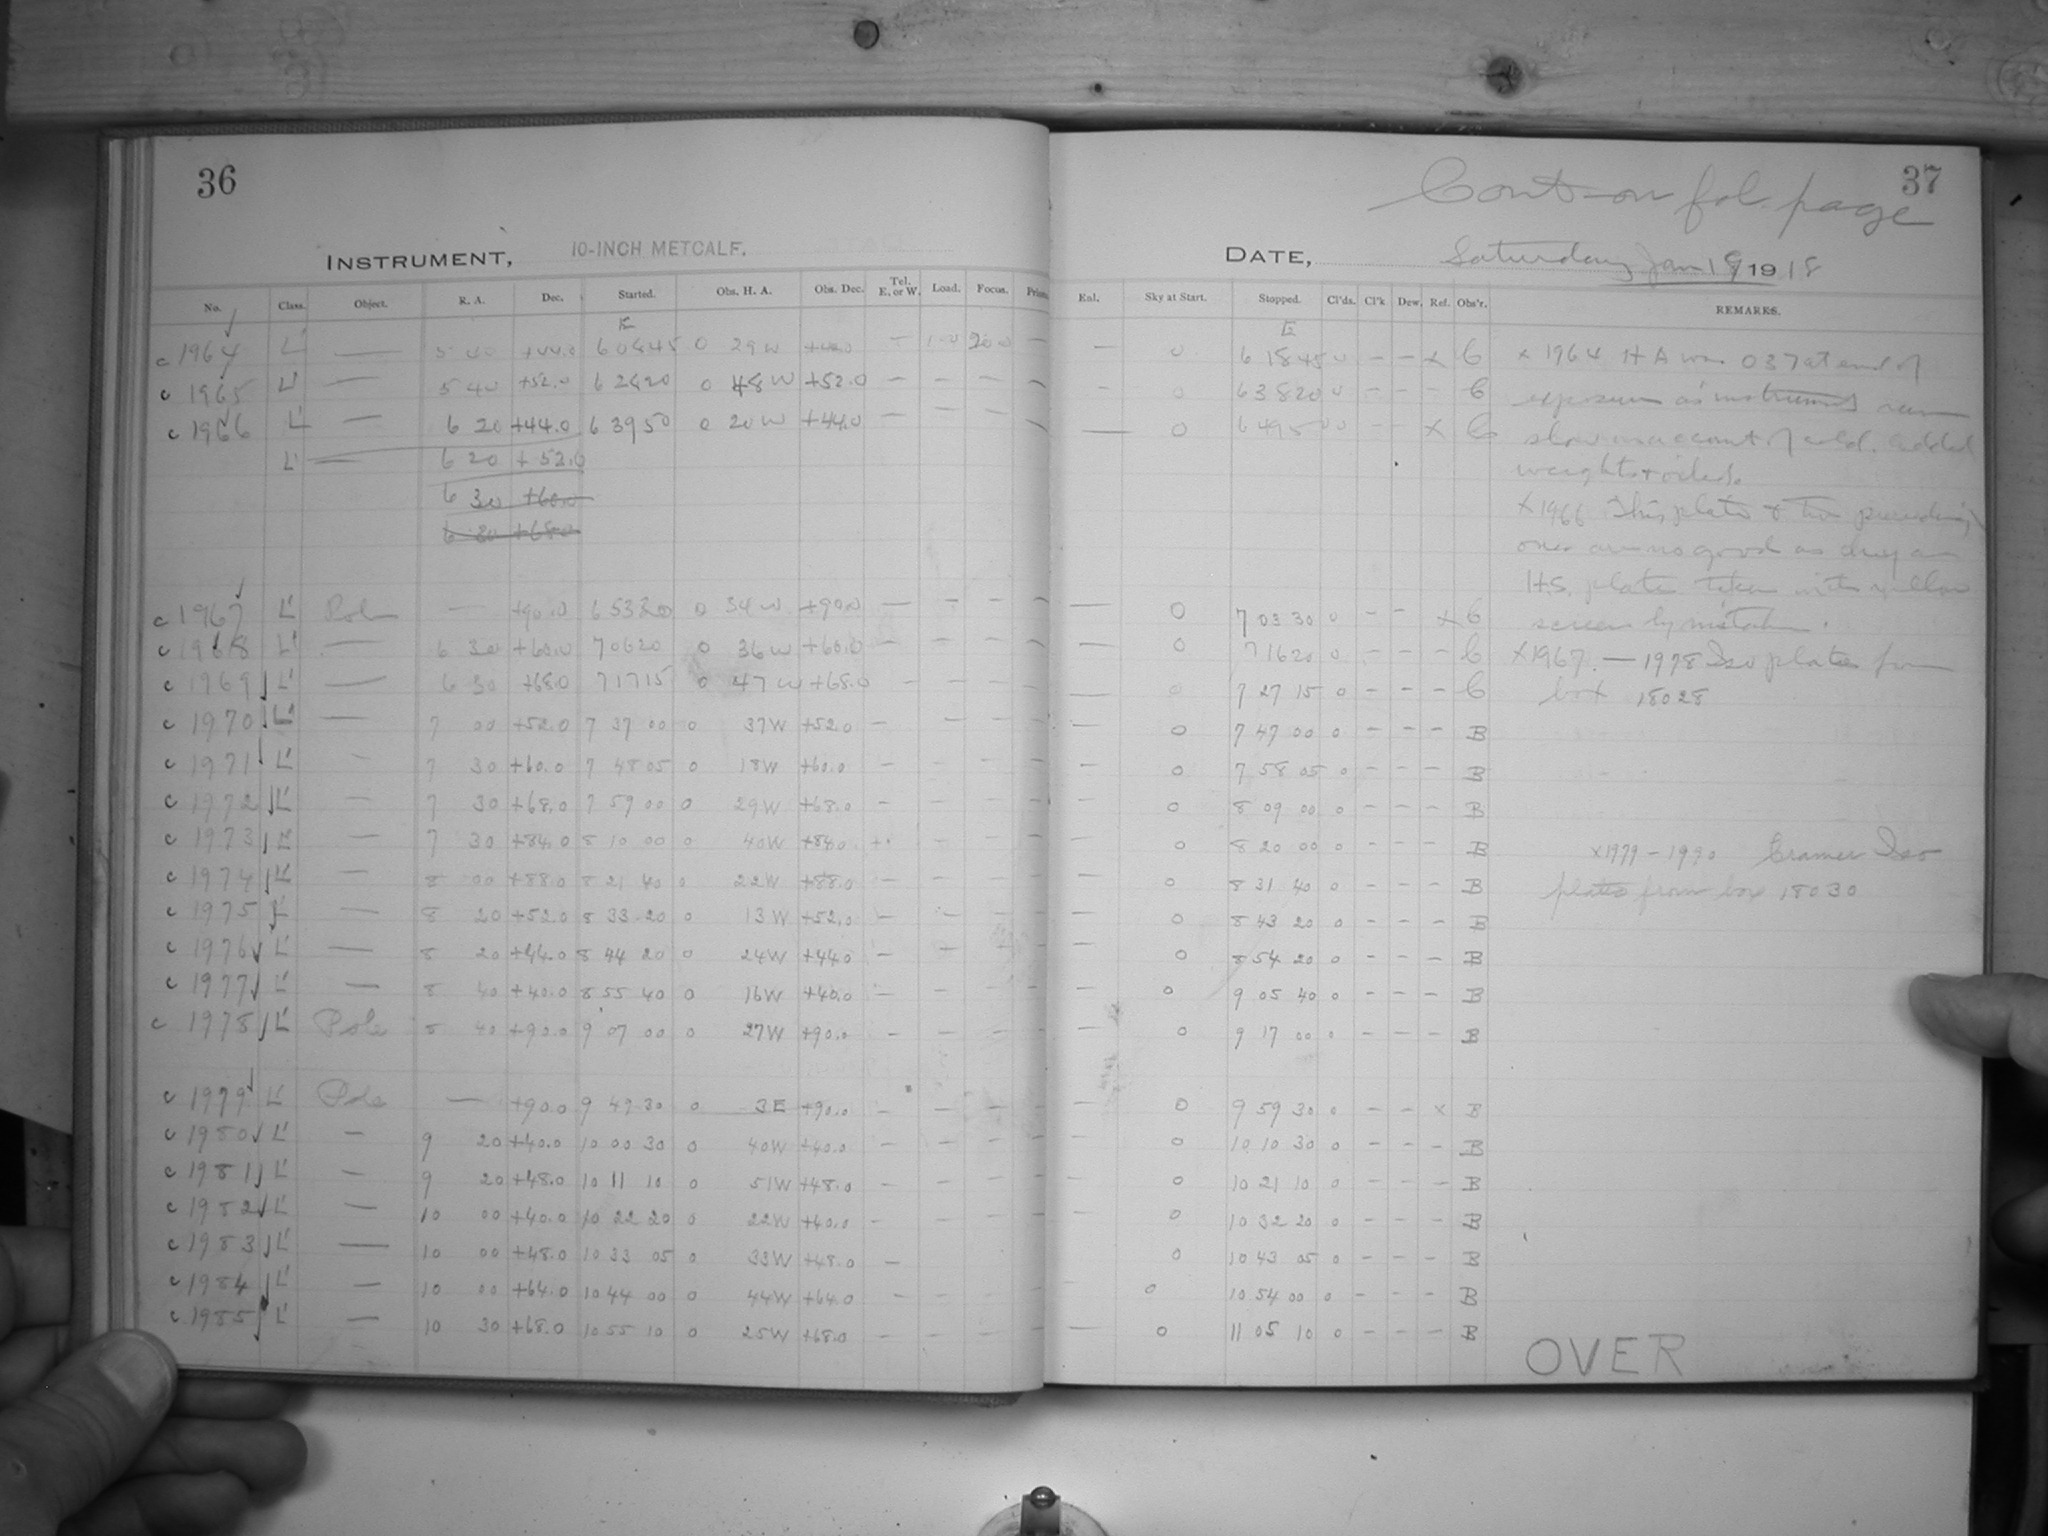 36
INSTRUMENT, 10-INCH METCALF.
No. Class. Object. R. A. Dec. Started. Obs. H. A. Obs. Dec. Tel. E. or W. Load. Focus.
E
c 1964 L' — 5 40 +44.0 6 08 45 0 29 W +44.0 — 20.0 —
c 1965 L' — 5 40 +52.0 6 28 20 0 48 W +52.0 — — — —
c 1966 L' — 6 20 +44.0 6 39 50 0 20 W +44.0 — — — —
L' — 6 20 +52.0
6 30 +60.0
+68.0
c 1967 L' Pole — +90.0 6 53 30 0 34 W +90.0 — — — —
c 1968 L' — 6 30 +60.0 7 06 20 0 36 W +60.0 — — — —
c 1969 L' — 6 30 +68.0 7 17 15 0 47 W +68.0 — — — —
c 1970 L' — 7 00 +52.0 7 37 00 0 37W +52.0 — — — —
c 1971 L' — 7 30 +60.0 7 48 05 0 18W +60.0 — — — —
c 1972 L' — 7 30 +68.0 7 59 00 0 29W +68.0 — — — —
c 1973 L' — 7 30 +84.0 8 10 00 0 40W +84.0 — — —
c 1974 L' — 8 00 +88.0 8 21 40 0 22W +88.0 — — — —
c 1975 L' — 8 20 +52.0 8 33 20 0 13W +52.0 — — — —
c 1976 L' — 8 20 +44.0 8 44 20 0 24W +44.0 — — — —
c 1977 L' — 8 40 +40.0 8 55 40 0 16W +40.0 — — — —
c 1978 L' Pole 8 40 +90.0 9 07 00 0 27W +90.0 — — — —
c 1979 L' Pole — +90.0 9 49 30 0 3E +90.0 — — — —
c 1980 L' — 9 20 +40.0 10 00 30 0 40W +40.0 — — — —
c 1981 L' — 9 20 +48.0 10 11 10 0 51W +48.0 — — — —
c 1982 L' — 10 00 +40.0 10 22 20 0 22W +40.0 — — — —
c 1983 L' — 10 00 +48.0 10 33 05 0 33W +48.0 —
c 1984 L' — 10 00 +64.0 10 44 00 0 44W +64.0 — — — —
c 1985 L' — 10 30 +68.0 10 55 10 0 25W +68.0 — — — —
37
Cont-on fol. page
DATE, Saturday Jan 19 1918
Enl. Sky at Start. Stopped. Cl'ds. Cl'k Dew. Ref. Obs'r. REMARKS.
E
— 0 6 18 45 0 — — x C x 1964 H A was 0 37 at end of
— 0 6 38 20 0 — — — C exposure as instrument ran
— 0 6 49 50 0 — — x C slow on account of cold. added
weights + oiled.
x 1966 This plate & two preceding
ones are no good as they are
H.S. plates taken with yellow
— 0 7 03 30 0 — — x C screen by mistake.
— 0 7 16 20 0 — — — C x 1967 — 1978 Iso plates from
— 0 7 27 15 0 — — — C box 18028
— 0 7 47 00 0 — — — B
— 0 7 58 05 0 — — — B
— 0 8 09 00 0 — — — B
— 0 8 20 00 0 — — — B x 1979 - 1990 Cramer Iso
— 0 8 31 40 0 — — — B plates from box 18030
— 0 8 43 20 0 — — — B
— 0 8 54 20 0 — — — B
— 0 9 05 40 0 — — — B
— 0 9 17 00 0 — — — B
— 0 9 59 30 0 — — x B
— 0 10 10 30 0 — — — B
— 0 10 21 10 0 — — — B
— 0 10 32 20 0 — — — B
0 10 43 05 0 — — — B
— 0 10 54 00 0 — — — B
— 0 11 05 10 0 — — — B
OVER